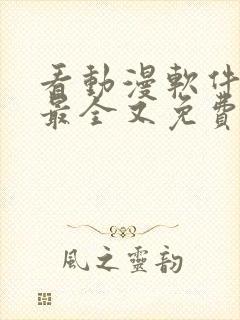 看動漫軟件
最全又免費
風之靈韵